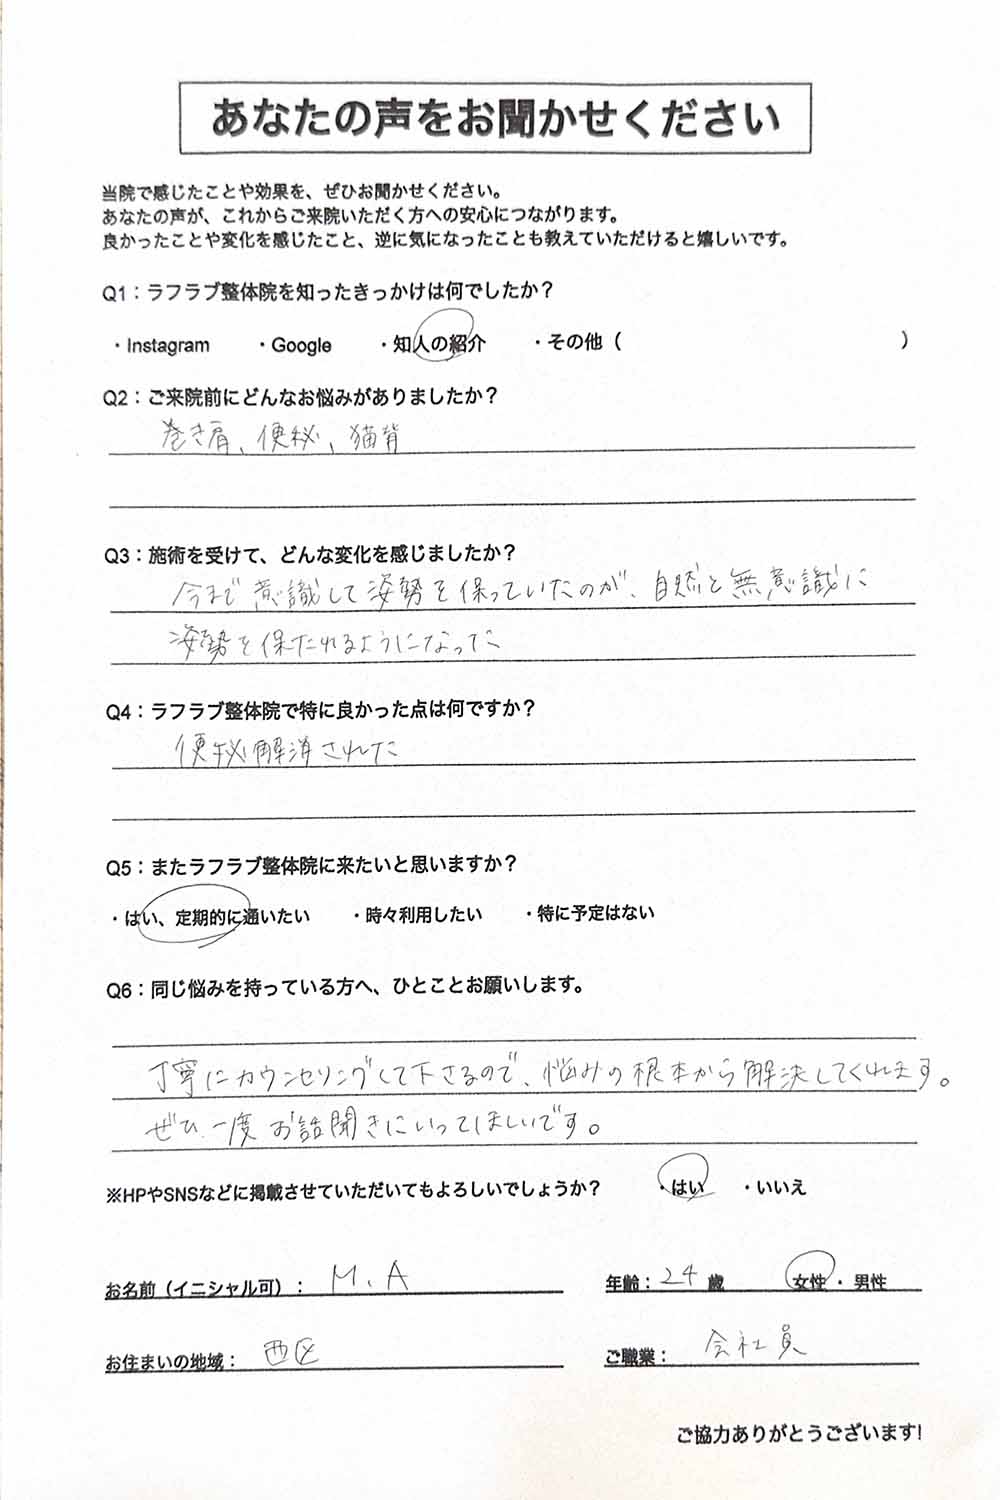 あなたの声をお聞かせください
当院で感じたことや効果を、ぜひお聞かせください。
あなたの声が、これからご来院いただく方への安心につながります。
良かったことや変化を感じたこと、逆に気になったことも教えていただけると嬉しいです。
Q1：ラフラブ整体院を知ったきっかけは何でしたか？
・Instagram ・Google ・知人の紹介 ・その他（ ）
Q2：ご来院前にどんなお悩みがありましたか？
巻き肩、便秘、猫背
Q3：施術を受けて、どんな変化を感じましたか？
今まで意識して姿勢を保っていたのが、自然と無意識に
姿勢を保たれるようになった
Q4：ラフラブ整体院で特に良かった点は何ですか？
便秘解消された
Q5：またラフラブ整体院に来たいと思いますか？
・はい、定期的に通いたい ・時々利用したい ・特に予定はない
Q6：同じ悩みを持っている方へ、ひとことお願いします。
丁寧にカウンセリングして下さるので、悩みの根本から解決してくれます。
ぜひ、一度お話聞きにいってほしいです。
※HPやSNSなどに掲載させていただいてもよろしいでしょうか？ ・はい ・いいえ
お名前（イニシャル可）： M.A 年齢：24 歳 女性・男性
お住まいの地域： 西区 ご職業： 会社員
ご協力ありがとうございます!